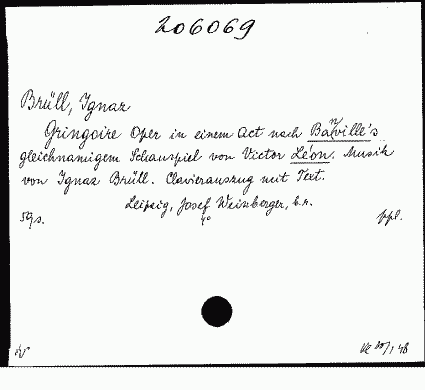 206069
Brüll, Ignaz
Gringoire Oper in einem Act nach Banville's
gleichnamigem Schauspiel von Victor Léon. Musik
von Ignaz Brüll. Clavierauszug mit Text.
Leipzig, Josef Weinberger,
4°
ppl.